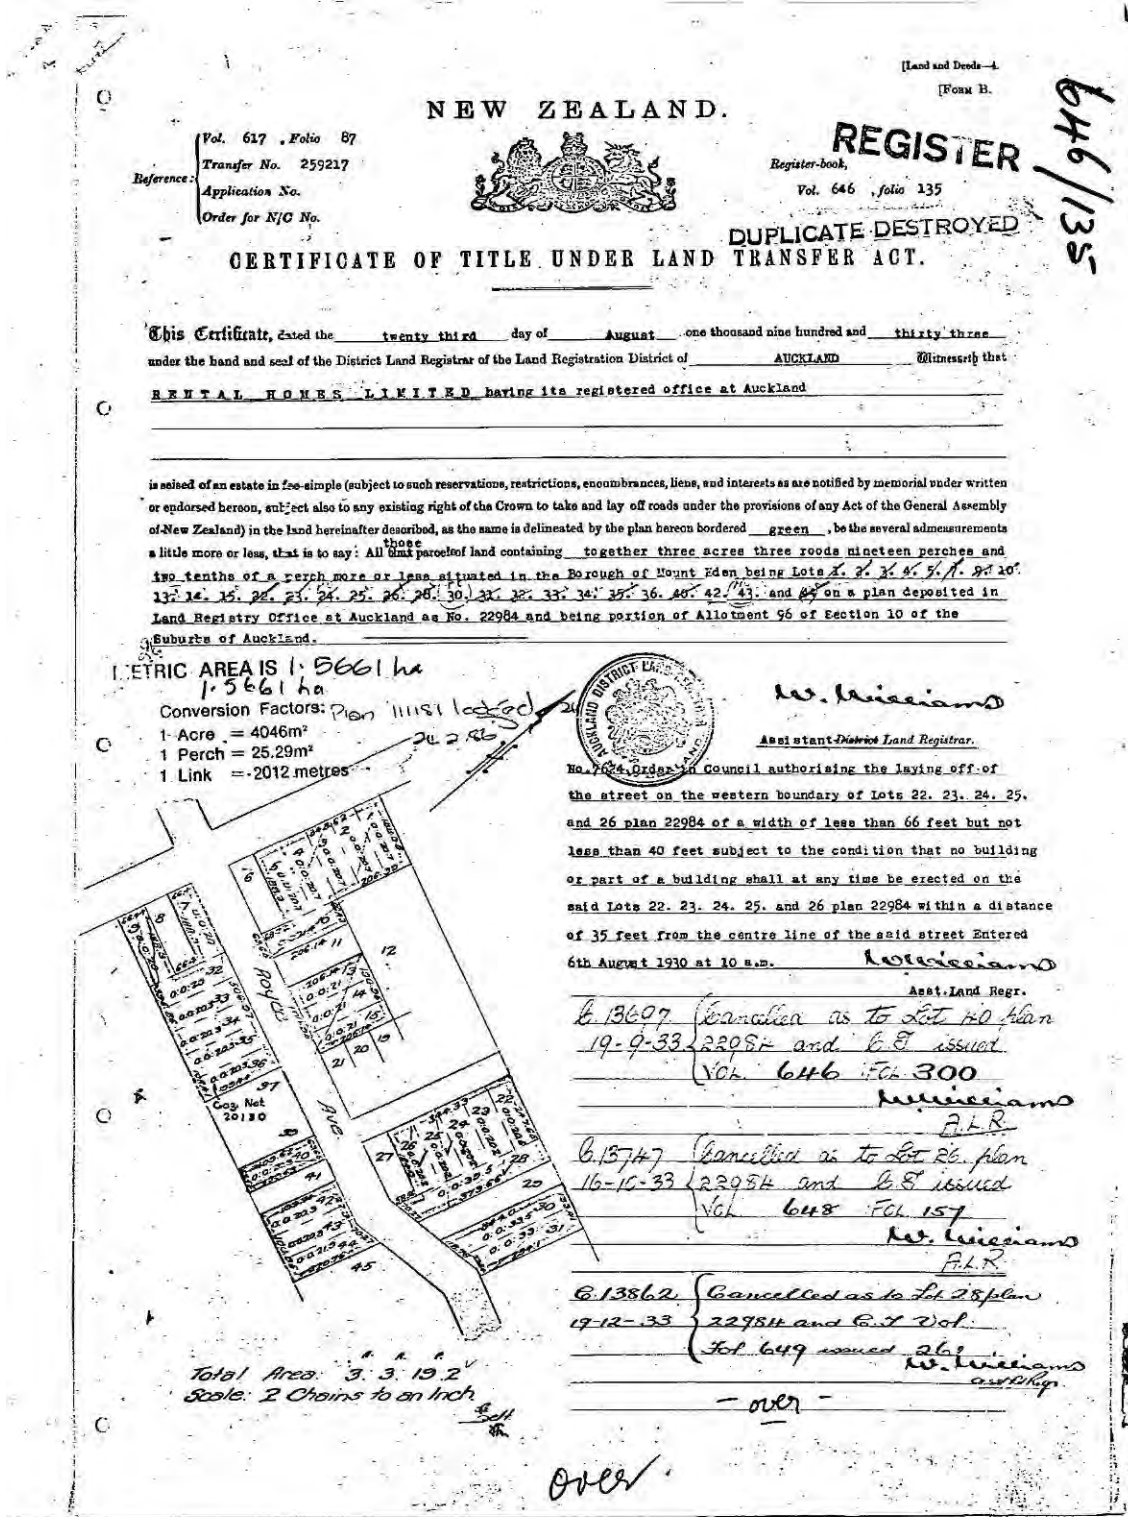 [Land and Deeds—4.
[FORM B.
646/135
NEW ZEALAND.
REGISTER
Reference:
Vol. 617 , Folio 87
Transfer No. 259217
Application No.
Order for N/C No.
Register-book,
Vol. 646 , folio 135
DUPLICATE DESTROYED
CERTIFICATE OF TITLE UNDER LAND TRANSFER ACT.
This Certificate, dated the twenty third day of August one thousand nine hundred and thirty three
under the hand and seal of the District Land Registrar of the Land Registration District of AUCKLAND Witnesseth that
RENTAL HOMES LIMITED having its registered office at Auckland
is seised of an estate in fee-simple (subject to such reservations, restrictions, encumbrances, liens, and interests as are notified by memorial under written
or endorsed hereon, subject also to any existing right of the Crown to take and lay off roads under the provisions of any Act of the General Assembly
of New Zealand) in the land hereinafter described, as the same is delineated by the plan hereon bordered green , be the several admeasurements
a little more or less, that is to say: All those parcels of land containing together three acre three roods nineteen perches and
two tenths of a perch more or less situated in the Borough of Mount Eden being Lots 1. 2. 3. 4. 5. 7. 9. 10.
13. 14. 15. 22. 23. 24. 25. 26. 28. 30. 31. 32. 33. 34. 35. 36. 40. 42. 43. and 44 on a plan deposited in
Land Registry Office at Auckland as No. 22984 and being portion of Allotment 96 of Section 10 of the
Suburbs of Auckland.
METRIC AREA IS 1.5661 ha
1.5661 ha
Conversion Factors:
1 Acre = 4046m²
1 Perch = 25.29m²
1 Link = .2012 metres
Plan 111151 lodged
24.2.86
AUCKLAND DISTRICT LAND
W. Williams
Assistant District Land Registrar.
No. 7624 Order in Council authorising the laying off of
the street on the western boundary of Lots 22. 23. 24. 25.
and 26 plan 22984 of a width of less than 66 feet but not
less than 40 feet subject to the condition that no building
or part of a building shall at any time be erected on the
said Lots 22. 23. 24. 25. and 26 plan 22984 within a distance
of 35 feet from the centre line of the said street Entered
6th August 1930 at 10 a.m. W Williams
Asst. Land Regr.
C.13697 Cancelled as to Lot 40 plan
19-9-33 22984 and C.T issued
VOL. 646 FOL 300
W Williams
A.L.R.
C.13747 Cancelled as to Lot 26 plan
16-10-33 22984 and C.T issued
VOL 648 FOL 157
W. Williams
A.L.R.
C.13862 Cancelled as to Lot 28 plan
19-12-33 22984 and C.T Vol.
Fol 649 issued 26
W. Williams
— over —
16
8
11
12
14
15
21 20 19
32
33
34
35
36
37
Royce
Ave
Gaz. Not
20130
39
40
41
42
43
44
45
27
26
25
24
23
22
28
29
30
31
Total Area: 3. 3. 19.2
Scale: 2 Chains to an Inch
over